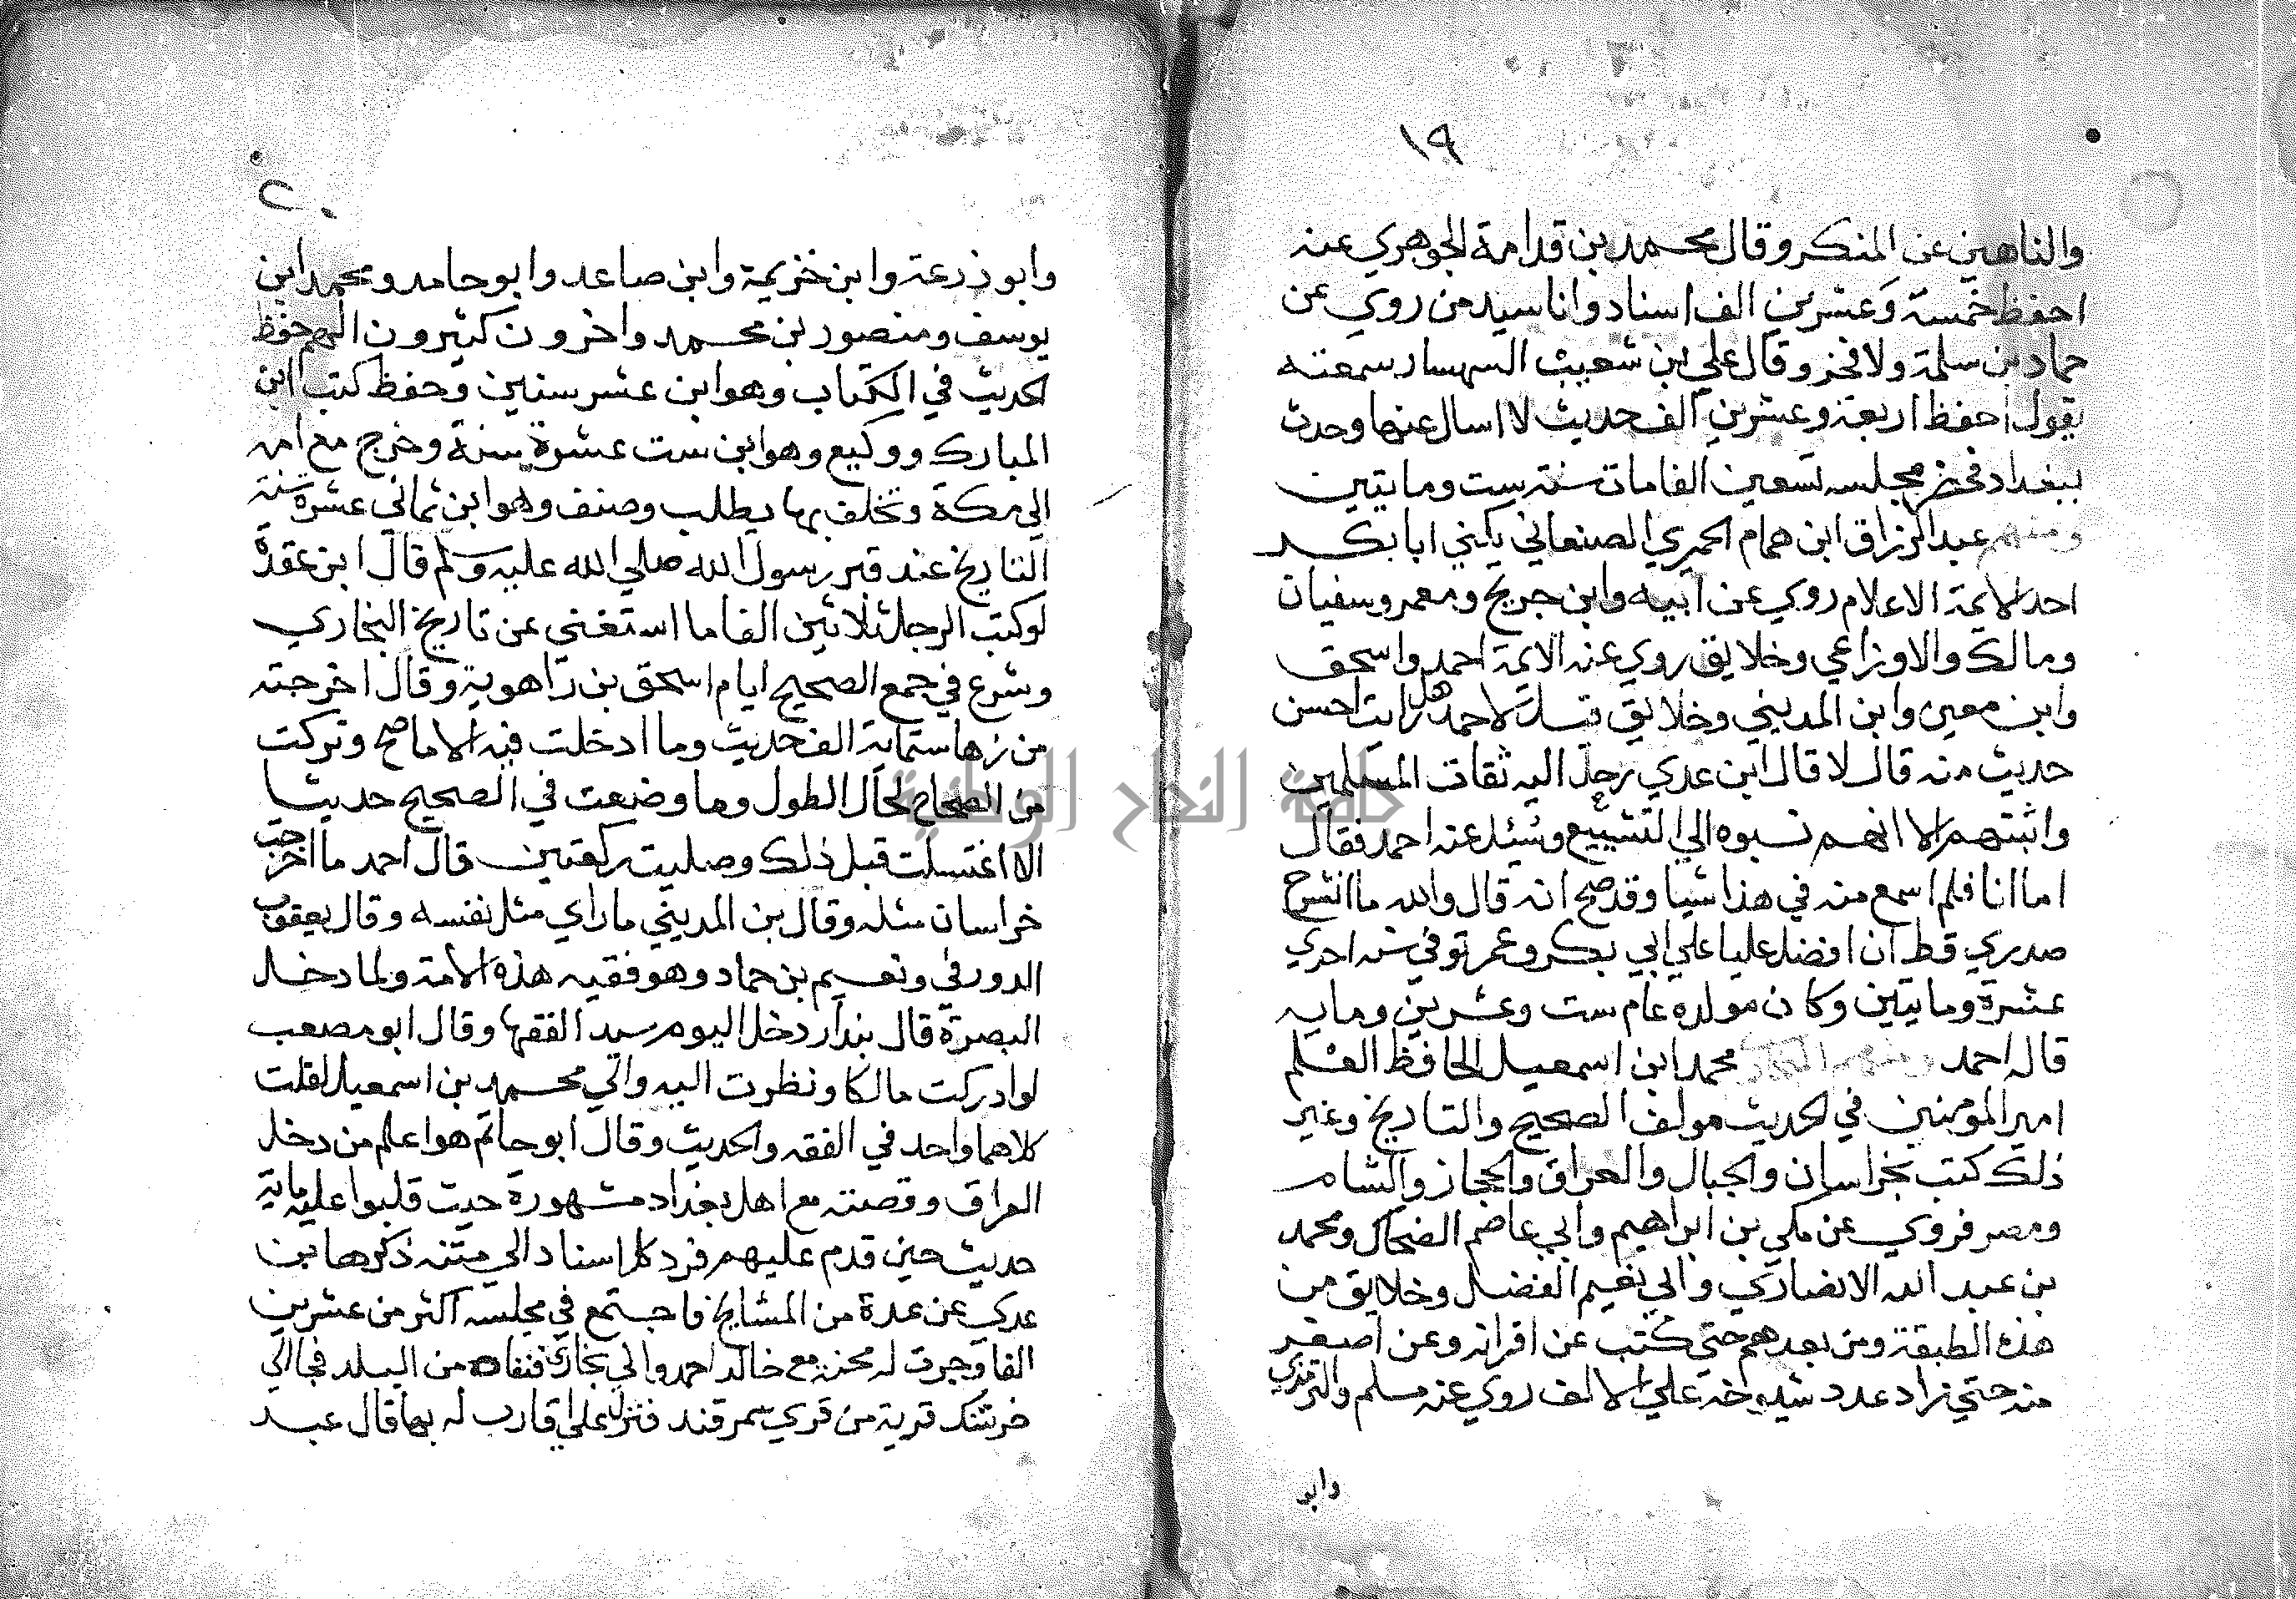 ١٩
والناهين عن المنكر وقال محمد بن قدامة الجوهري عنه
احفظ خمسة وعشرين الف اسناد واناسيد من روي عن
حماد بن سلمة ولا فخر وقال علي بن شعيب السهسار سمعته
يقول احفظ اربعة وعشرين الف حديث لا اسال عنها وحدث
ببغداد فحزر مجلسه تسعين الفا مات سنة ست ومايتين
ومنهم عبد الرزاق ابن همام الحميري الصنعاني يكني ابا بكر
احد الايمة الاعلام روي عن ابيه وابن جريج ومعمر وسفيان
ومالك والاوزاعي وخلايق روي عنه الايمة احمد واسحق
وابن معين وابن المديني وخلايق قيل لاحمد هل رايت احسن
حديث منه قال لا قال ابن عدي رحل اليه ثقات المسلمين
واثبتهم الا انهم نسبوه الي التشييع وسئل عنه احمد فقال
اما انا فلم اسمع منه في هذا شيا وقد صح انه قال والله ما انشرح
صدري قط ان افضل عليا علي ابي بكر وعمر توفي سنه احدي
عشرة ومايتين وكان مولده عام ست وعشرين ومايه
قاله احمد ومنهم البخاري محمد ابن اسمعيل الحافظ العلم
امير المومنين في الحديث مولف الصحيح والتاريخ وغير
ذلك كتب بخراسان والجبال والعراق والحجاز والشام
ومصر فروي عن مكي بن ابراهيم وابي عاصم الضحاك ومحمد
بن عبد الله الانصاري وابي نعيم الفضل وخلايق من
هذه الطبقة ومن بعدهم حتي كتب عن اقرانه وعن اصغر
منه حتي زاد عدد شيوخه علي الالف روي عنه مسلم والترمذي
وابو
٢٠
وابو زرعة وابن خزيمة وابن صاعد وابو حامد ومحمد ابن
يوسف ومنصور بن محمد واخرون كثيرون الهم حفظ
الحديث في الكتاب وهو ابن عشر سنين وحفظ كتب ابن
المبارك ووكيع وهو ابن ست عشرة سنة وخرج مع امه
الي مكة وتخلف بها يطلب وصنف وهو ابن ثماني عشرة سنة
التاريخ عند قبر رسول الله صلي الله عليه وسلم قال ابن عقدة
لو كتب الرجل ثلاثين الفا ما استغني عن تاريخ البخاري
وشرع في جمع الصحيح ايام اسحق بن راهوية وقال اخرجته
من زها ستماية الف حديث وما ادخلت فيه الا ما صح وتركت
من الصحاح لحال الطول وما وضعت في الصحيح حديثا
الا اغتسلت قبل ذلك وصليت ركعتين قال احمد ما اخرجت
خراسان مثله وقال بن المديني ما راي مثل نفسه وقال يعقوب
الدورقي ونعيم بن حماد وهو فقيه هذه الامة ولما دخل
البصرة قال بندار دخل اليوم سيد الفقها وقال ابو مصعب
لو ادركت مالكا ونظرت اليه والي محمد بن اسمعيل لقلت
كلاهما واحد في الفقه والحديث وقال ابو حاتم هو اعلم من دخل
العراق وقصته مع اهل بغداد مشهورة حيث قلبوا عليه ماية
حديث حين قدم عليهم فرد كل اسناد الي متنه ذكرها بن
عدي عن عدة من المشايخ فاجتمع في مجلسه اكثر من عشرين
الفا وجرت له محنة مع خالد احمد والي بخاري فنفاه من البلد فجا الي
خرتنك قرية من قري سمرقند فنزل علي اقارب له بها قال عبد
جامعة النجاح الوطنية